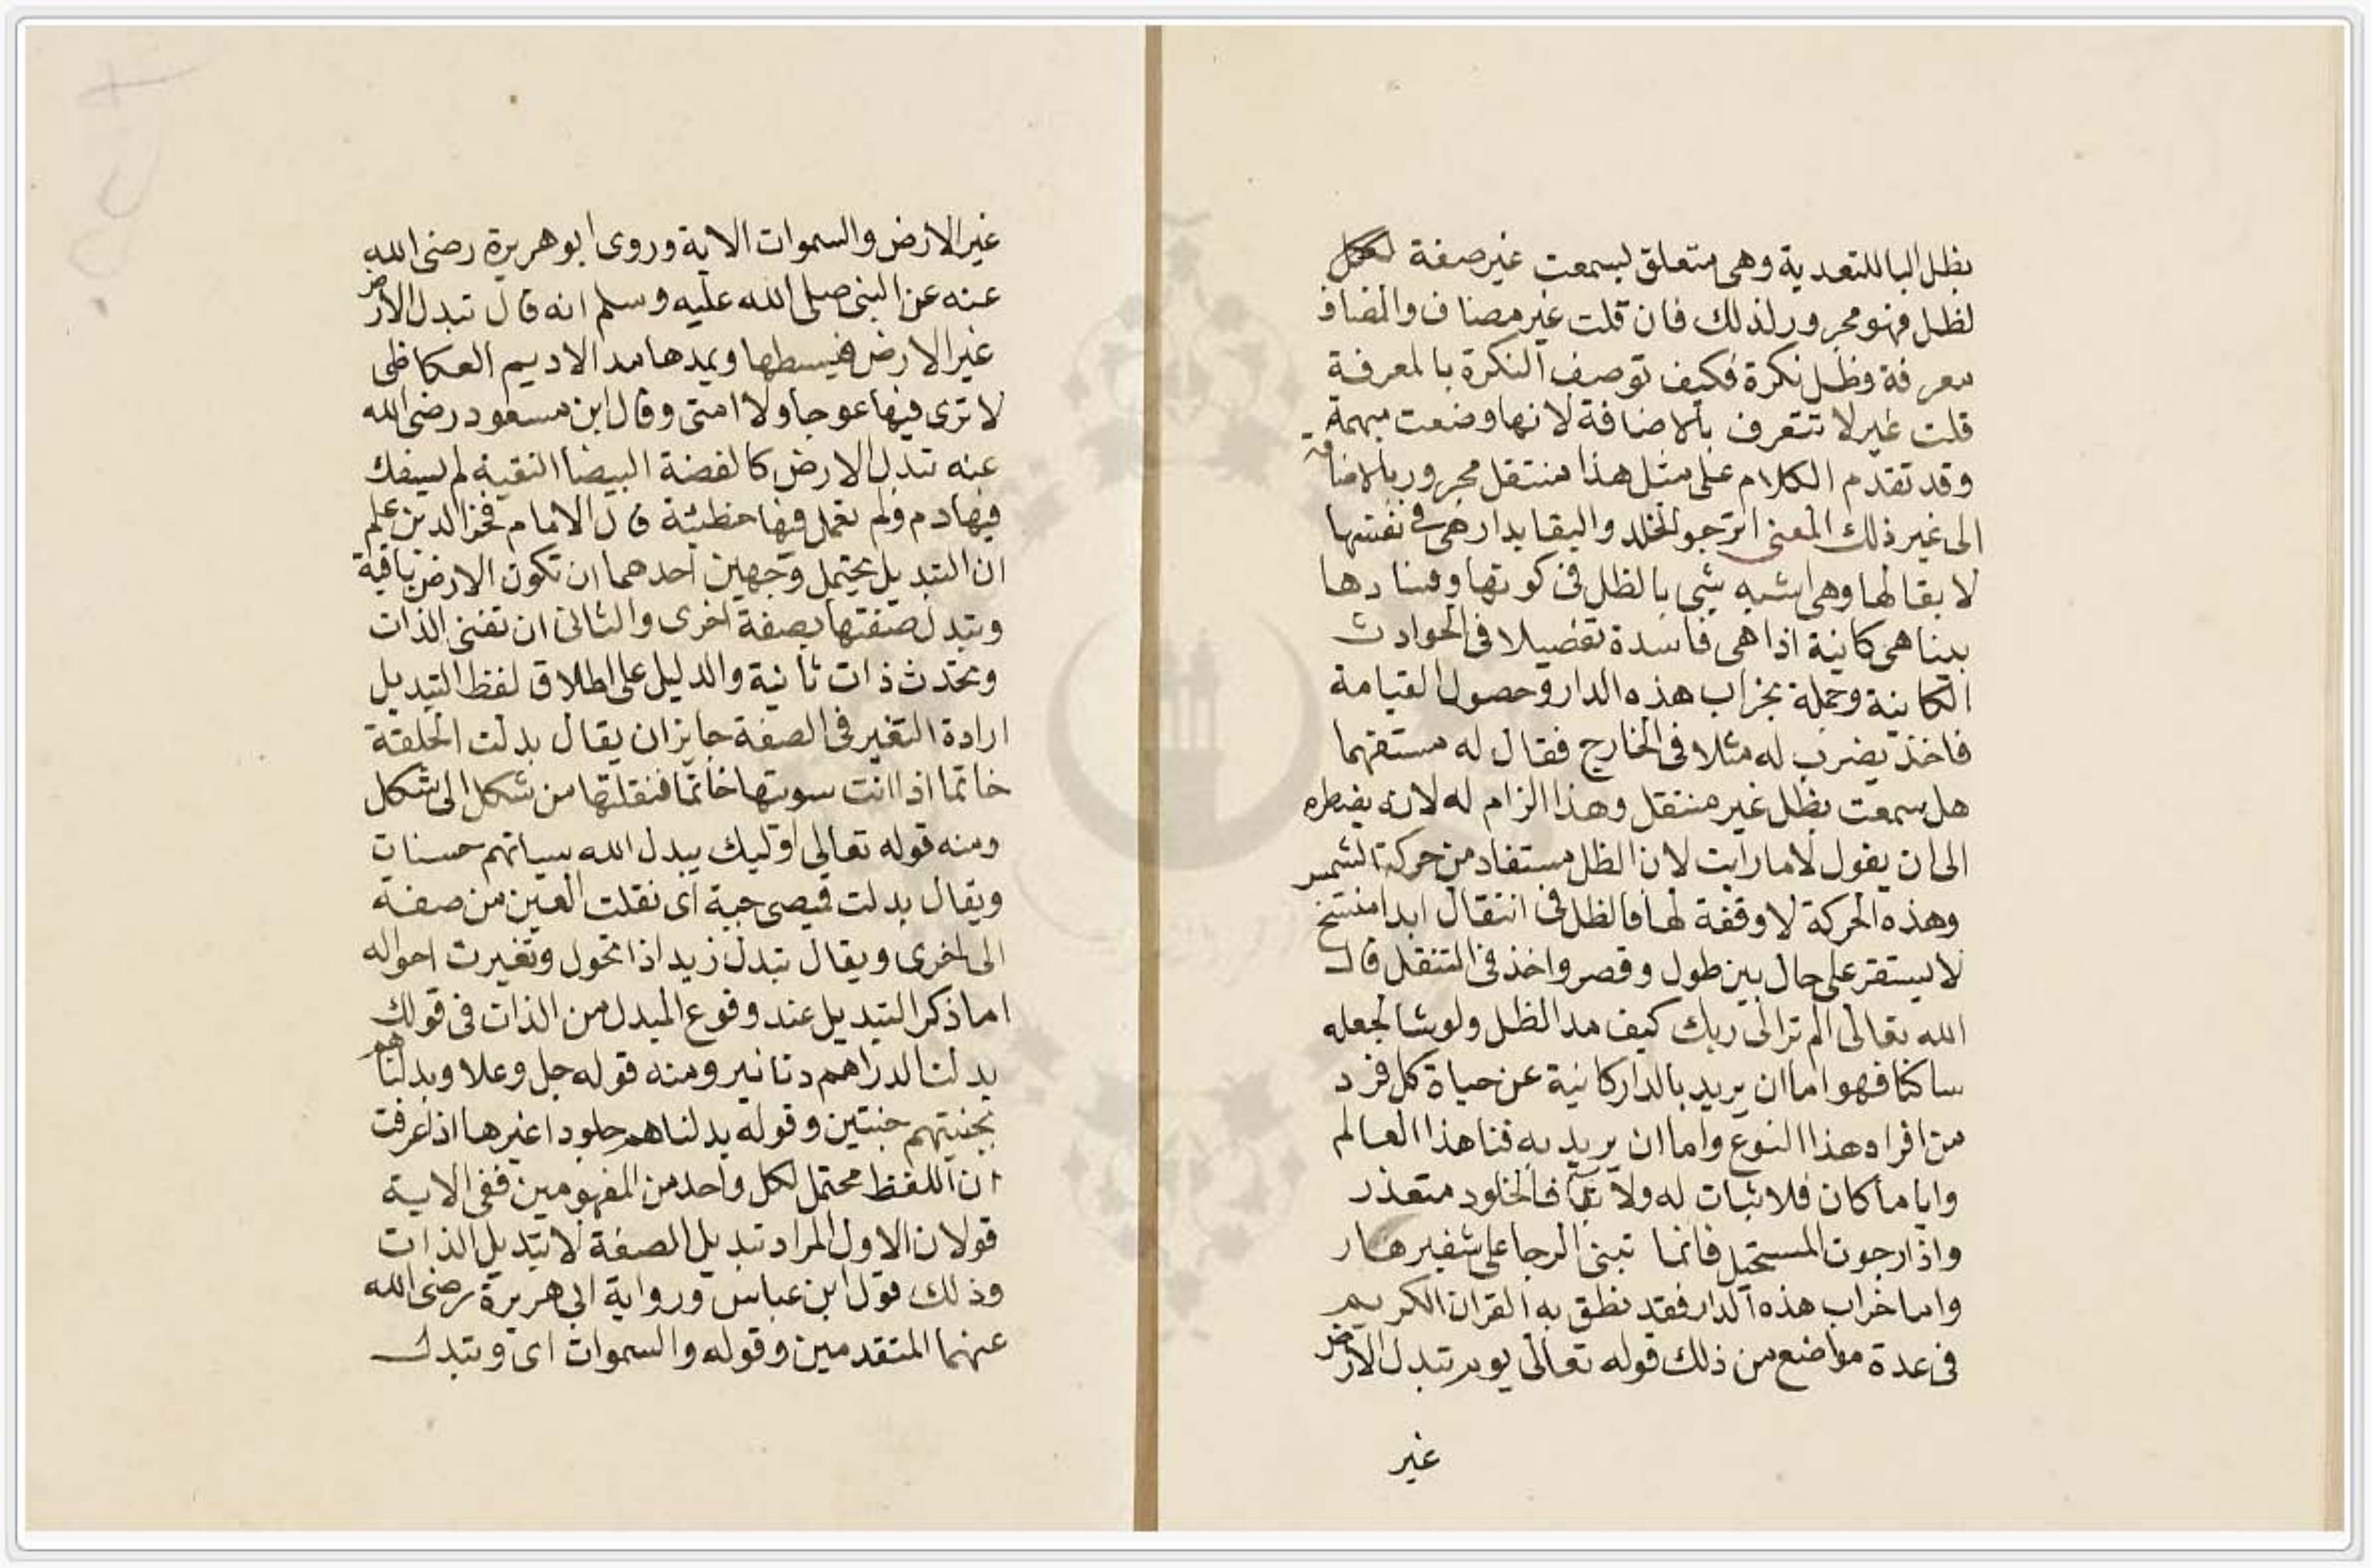 بظل البا للتعدية وهى متعلق لبسمعت غير صفة
لظل فهو مجرور لذلك فان قلت غير مضاف والمضاف
معرفة وظل نكرة فكيف توصف النكرة بالمعرفة
قلت غير لا تتعرف بالاضافة لانها وضعت مبهمة
وقد تقدم الكلام على مثل هذا منتقل مجرور بالاضافة
الى غير ذلك المعنى اترجو الخلد والبقا بدار هى فى نفسها
لا بقا لها وهى اشبه شى بالظل فى كونها وفسادها
بينا هى كاينة اذا هى فاسدة تفصيلا فى الحوادث
الكاينة وجملة بخراب هذه الدار وحصول القيامة
فاخذ يضرب له مثلا فى الخارج فقال له مستفهما
هل سمعت بظل غير منتقل وهذا الزام له لانه يضطره
الى ان يقول لا ما رايت لان الظل مستفاد من حركة الشمس
وهذه الحركة لا وقفة لها فالظل فى انتقال ابدا منتسخ
لا يستقر على حال بين طول وقصر واخذ فى التنقل قال
الله تعالى الم تر الى ربك كيف مد الظل ولو شا لجعله
ساكنا فهو اما ان يريد بالدار كانية عن حياة كل فرد
من افراد هذا النوع واما ان يريد به فنا هذا العالم
وايا ما كان فلا ثبات له ولا بقا فالخلود متعذر
واذا رجوت المستحيل فانما تبنى الرجا على شفير هار
واما خراب هذه الدار فقد نطق به القران الكريم
فى عدة مواضع من ذلك قوله تعالى يوم تبدل الارض
غير
غير الارض والسموات الاية وروى ابو هريرة رضى الله
عنه عن النبى صلى الله عليه وسلم انه قال تبدل الارض
غير الارض فيبسطها ويمدها مد الاديم العكاظى
لا ترى فيها عوجا ولا امتى وقال ابن مسعود رضى الله
عنه تبدل الارض كالفضة البيضا النقية لم يسفك
فيها دم ولم تعمل فيها خطيئة قال الامام فخر الدين علم
ان التبديل يحتمل وجهين احدهما ان تكون الارض باقية
وتبدل صفتها بصفة اخرى والثانى ان تفنى الذات
وتحدث ذات ثانية والدليل على اطلاق لفظ التبديل
ارادة التغير فى الصفة جايز ان يقال بدلت الحلقة
خاتما اذا انت سويتها خاتما فنقلتها من شكل الى شكل
ومنه قوله تعالى اوليك يبدل الله سياتهم حسنات
ويقال بدلت قميصى جبة اى نقلت العين من صفة
الى اخرى ويقال تبدل زيد اذا تحول وتغيرت احواله
اما ذكر التبديل عند وقوع المبدل من الذات فى قولك
بدلنا الدراهم دنانير ومنه قوله جل وعلا وبدلناهم
بجنتيهم جنتين وقوله بدلناهم جلودا غيرها اذا عرفت
ان اللفظ محتمل لكل واحد من المفهومين ففى الاية
قولان الاول المراد تبديل الصفة لا تبديل الذات
وذلك قول ابن عباس ورواية ابى هريرة رضى الله
عنهما المتقدمين وقوله والسموات اى وتبدل